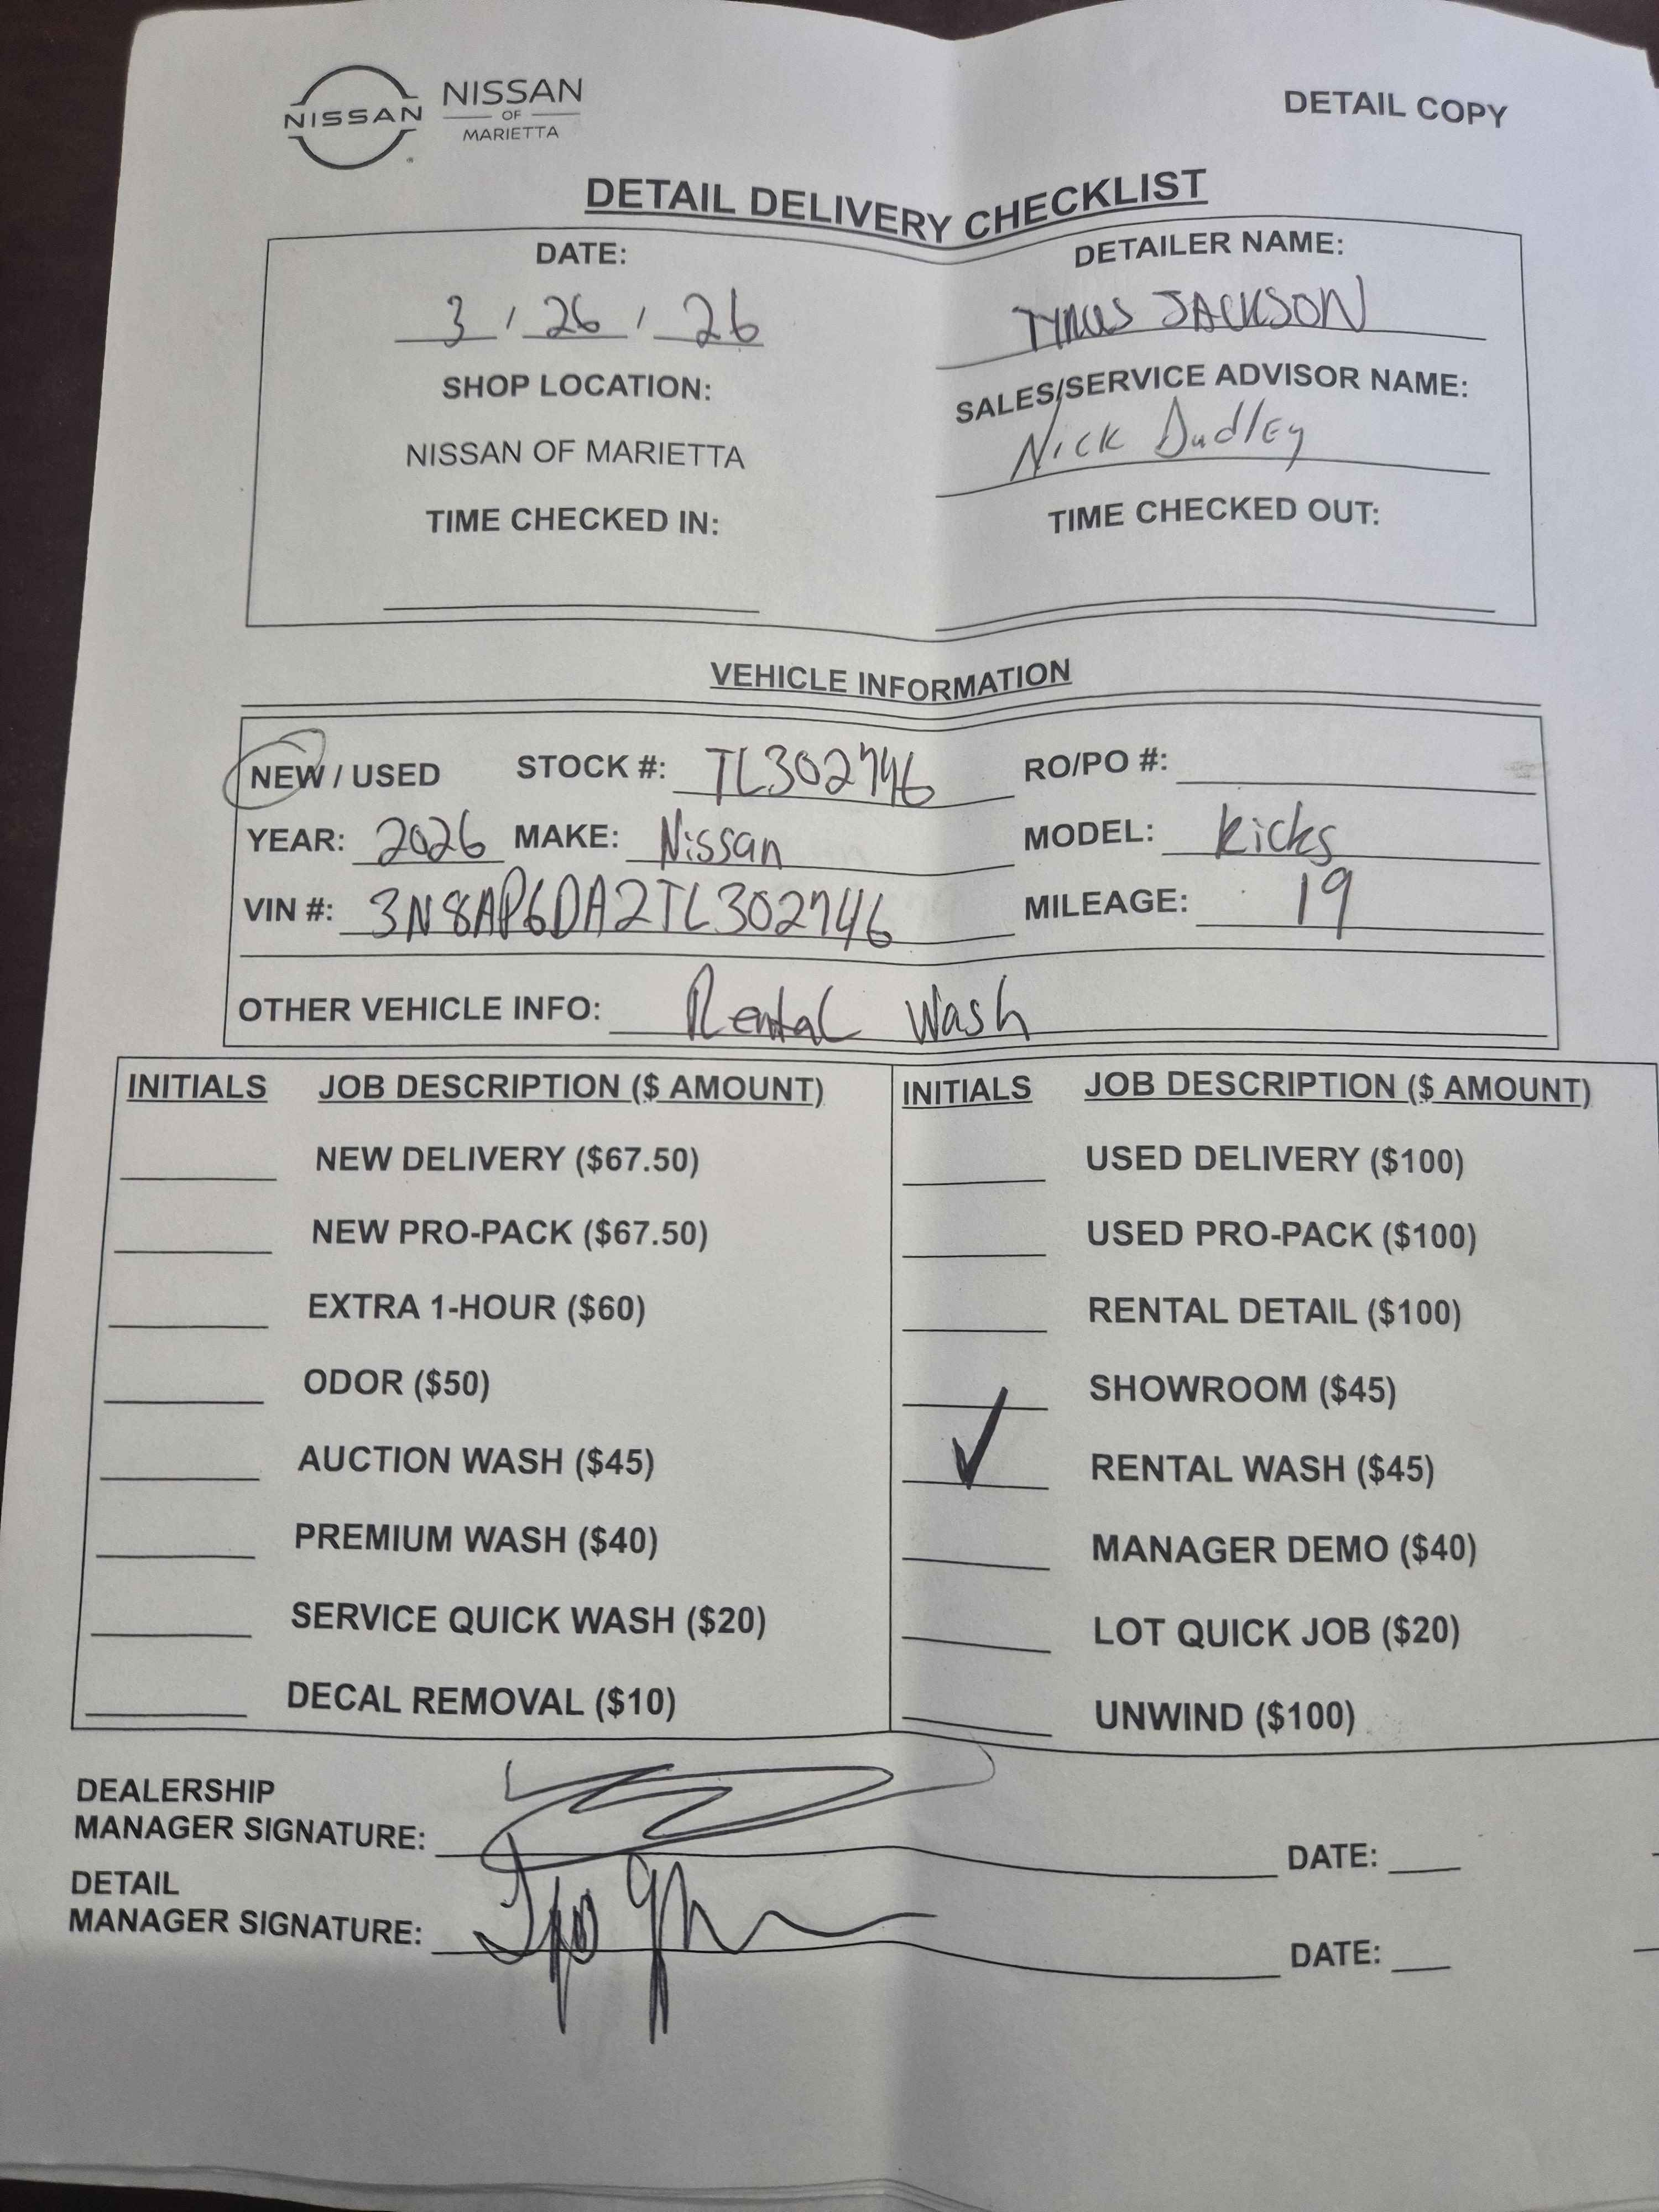 NISSAN
NISSAN
OF
MARIETTA
DETAIL COPY
DETAIL DELIVERY CHECKLIST
DATE:
3 / 26 / 26
DETAILER NAME:
JACKSON
SHOP LOCATION:
NISSAN OF MARIETTA
SALES/SERVICE ADVISOR NAME:
Nick Dudley
TIME CHECKED IN:
TIME CHECKED OUT:
VEHICLE INFORMATION
NEW / USED STOCK #: TL302746 RO/PO #:
YEAR: 2026 MAKE: Nissan MODEL: Kicks
VIN #: 3N8AP6DA2TL302746 MILEAGE: 19
OTHER VEHICLE INFO: Rental Wash
INITIALS JOB DESCRIPTION ($ AMOUNT)
NEW DELIVERY ($67.50)
NEW PRO-PACK ($67.50)
EXTRA 1-HOUR ($60)
ODOR ($50)
AUCTION WASH ($45)
PREMIUM WASH ($40)
SERVICE QUICK WASH ($20)
DECAL REMOVAL ($10)
INITIALS JOB DESCRIPTION ($ AMOUNT)
USED DELIVERY ($100)
USED PRO-PACK ($100)
RENTAL DETAIL ($100)
SHOWROOM ($45)
✓ RENTAL WASH ($45)
MANAGER DEMO ($40)
LOT QUICK JOB ($20)
UNWIND ($100)
DEALERSHIP
MANAGER SIGNATURE: DATE:
DETAIL
MANAGER SIGNATURE: DATE: